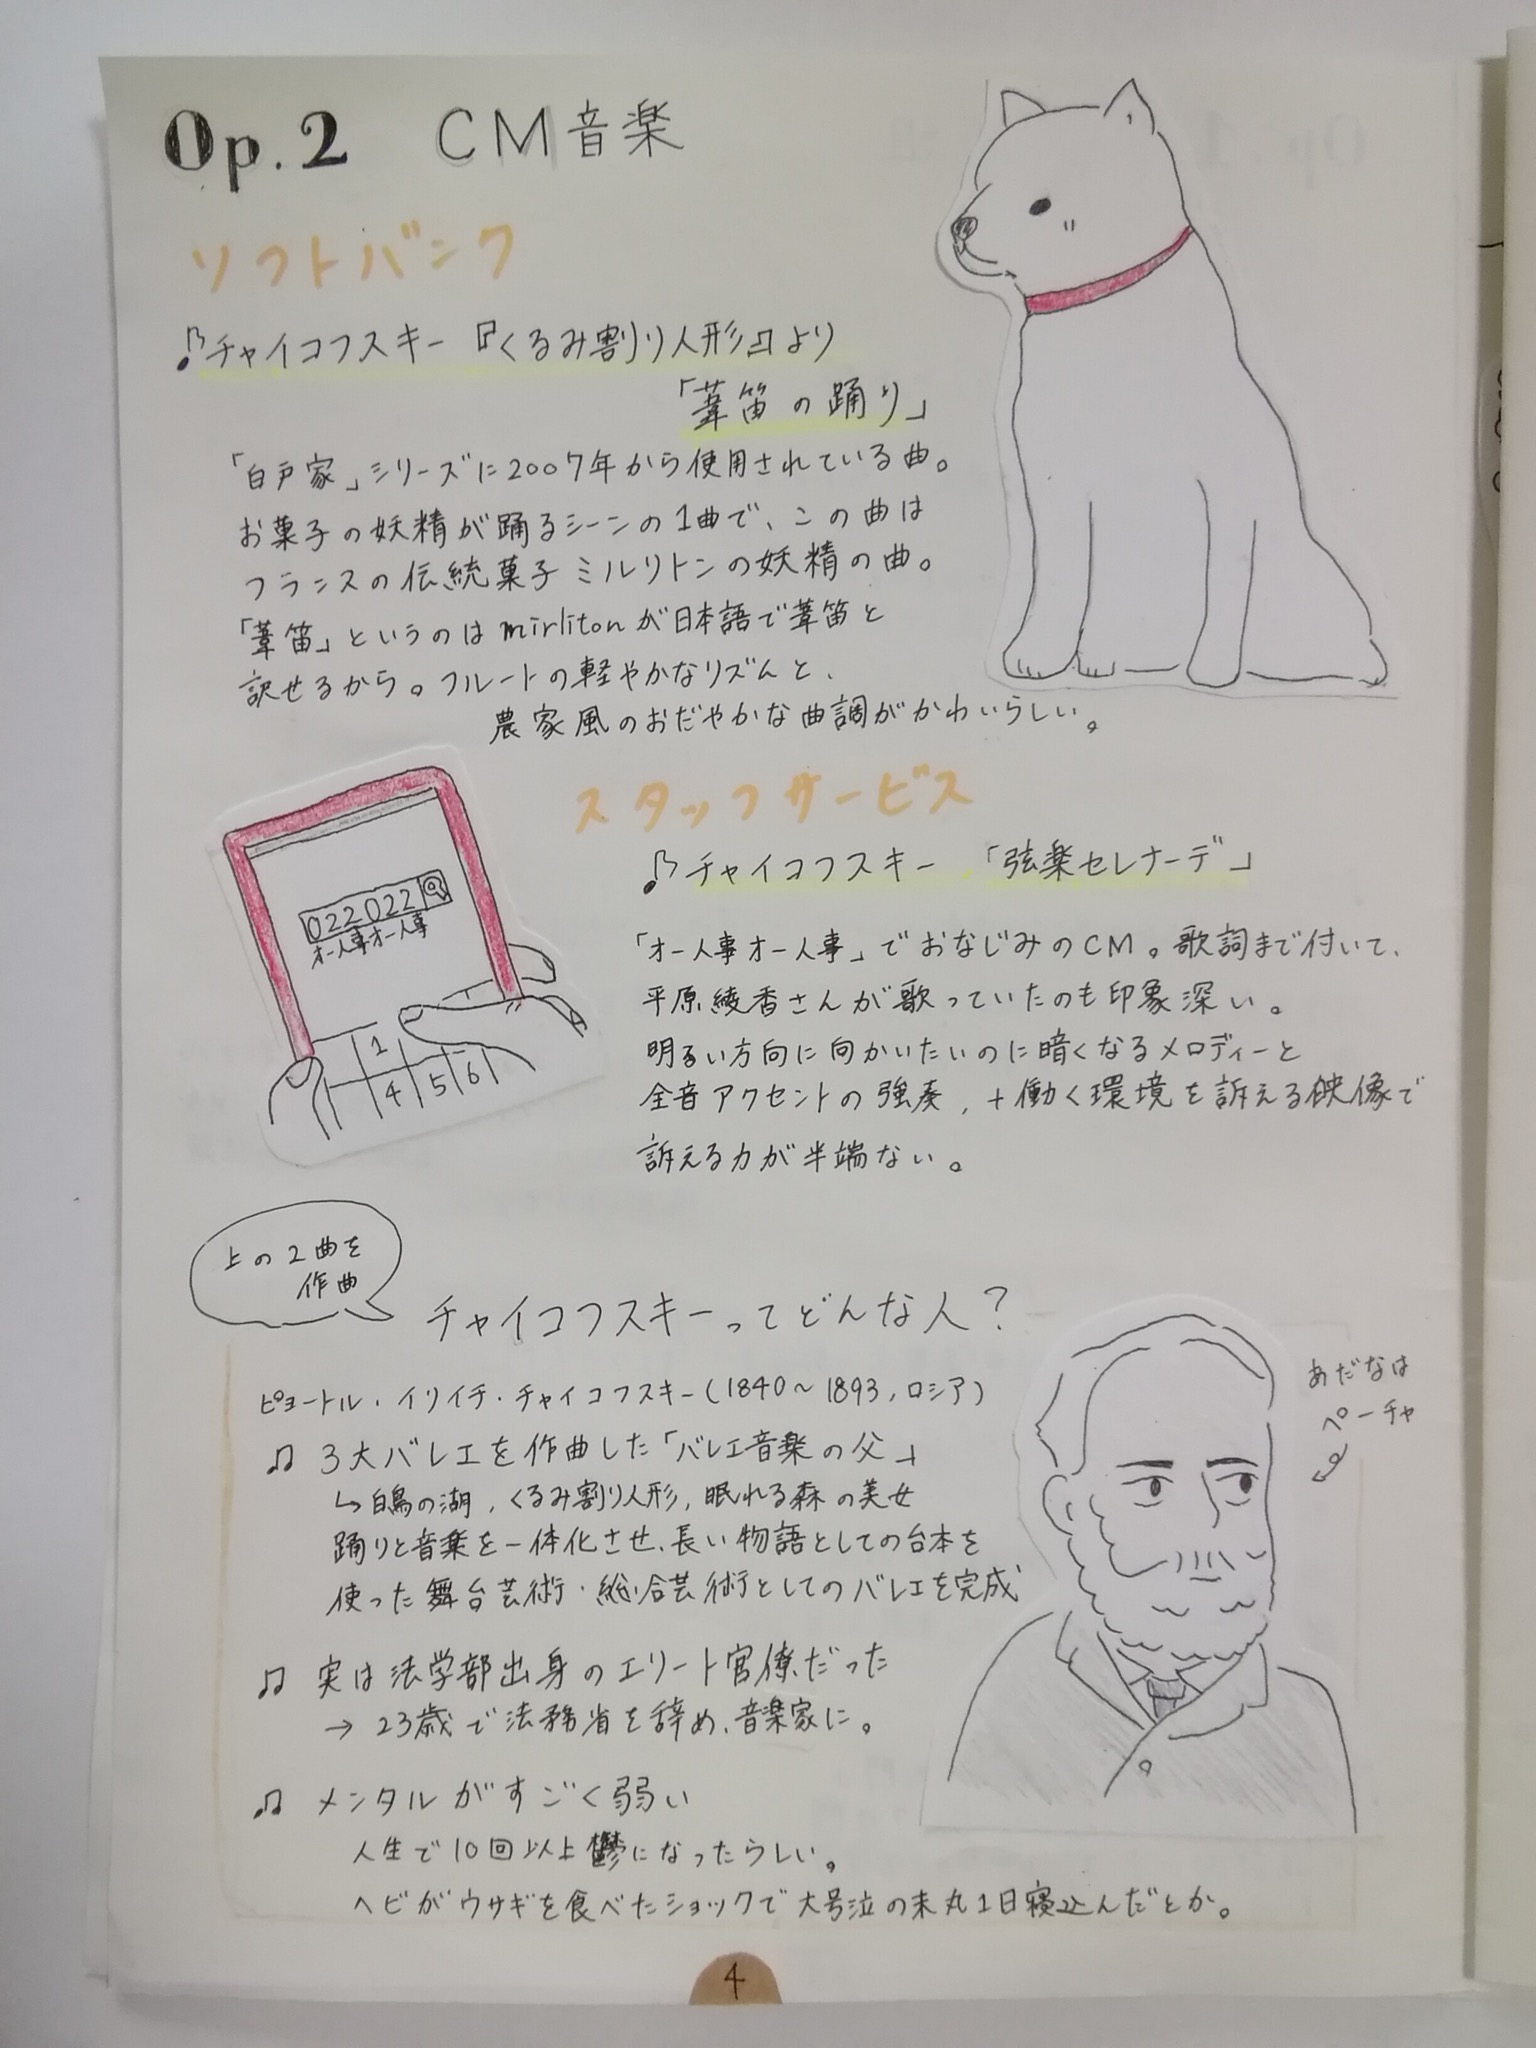 Op.2 CM音楽
ソフトバンク
チャイコフスキー『くるみ割り人形』より
「葦笛の踊り」
「白戸家」シリーズに2007年から使用されている曲。
お菓子の妖精が踊るシーンの1曲で、この曲は
フランスの伝統菓子ミルリトンの妖精の曲。
「葦笛」というのはmirlitonが日本語で葦笛と
訳せるから。フルートの軽やかなリズムと、
農家風のおだやかな曲調がかわいらしい。
スタッフサービス
チャイコフスキー 「弦楽セレナーデ」
022022
オー人事オー人事
1
4 5 6
「オー人事オー人事」でおなじみのCM。歌詞まで付いて、
平原綾香さんが歌っていたのも印象深い。
明るい方向に向かいたいのに暗くなるメロディーと
全音アクセントの強奏、+働く環境を訴える映像で
訴える力が半端ない。
上の2曲を
作曲
チャイコフスキーってどんな人?
ピョートル・イリイチ・チャイコフスキー(1840〜1893,ロシア)
あだなは
ペーチャ
♫ 3大バレエを作曲した「バレエ音楽の父」
↳白鳥の湖,くるみ割り人形,眠れる森の美女
踊りと音楽を一体化させ、長い物語としての台本を
使った舞台芸術・総合芸術としてのバレエを完成
♫ 実は法学部出身のエリート官僚だった
→23歳で法務省を辞め、音楽家に。
♫ メンタルがすごく弱い
人生で10回以上鬱になったらしい。
ヘビがウサギを食べたショックで大号泣の末丸1日寝込んだとか。
4